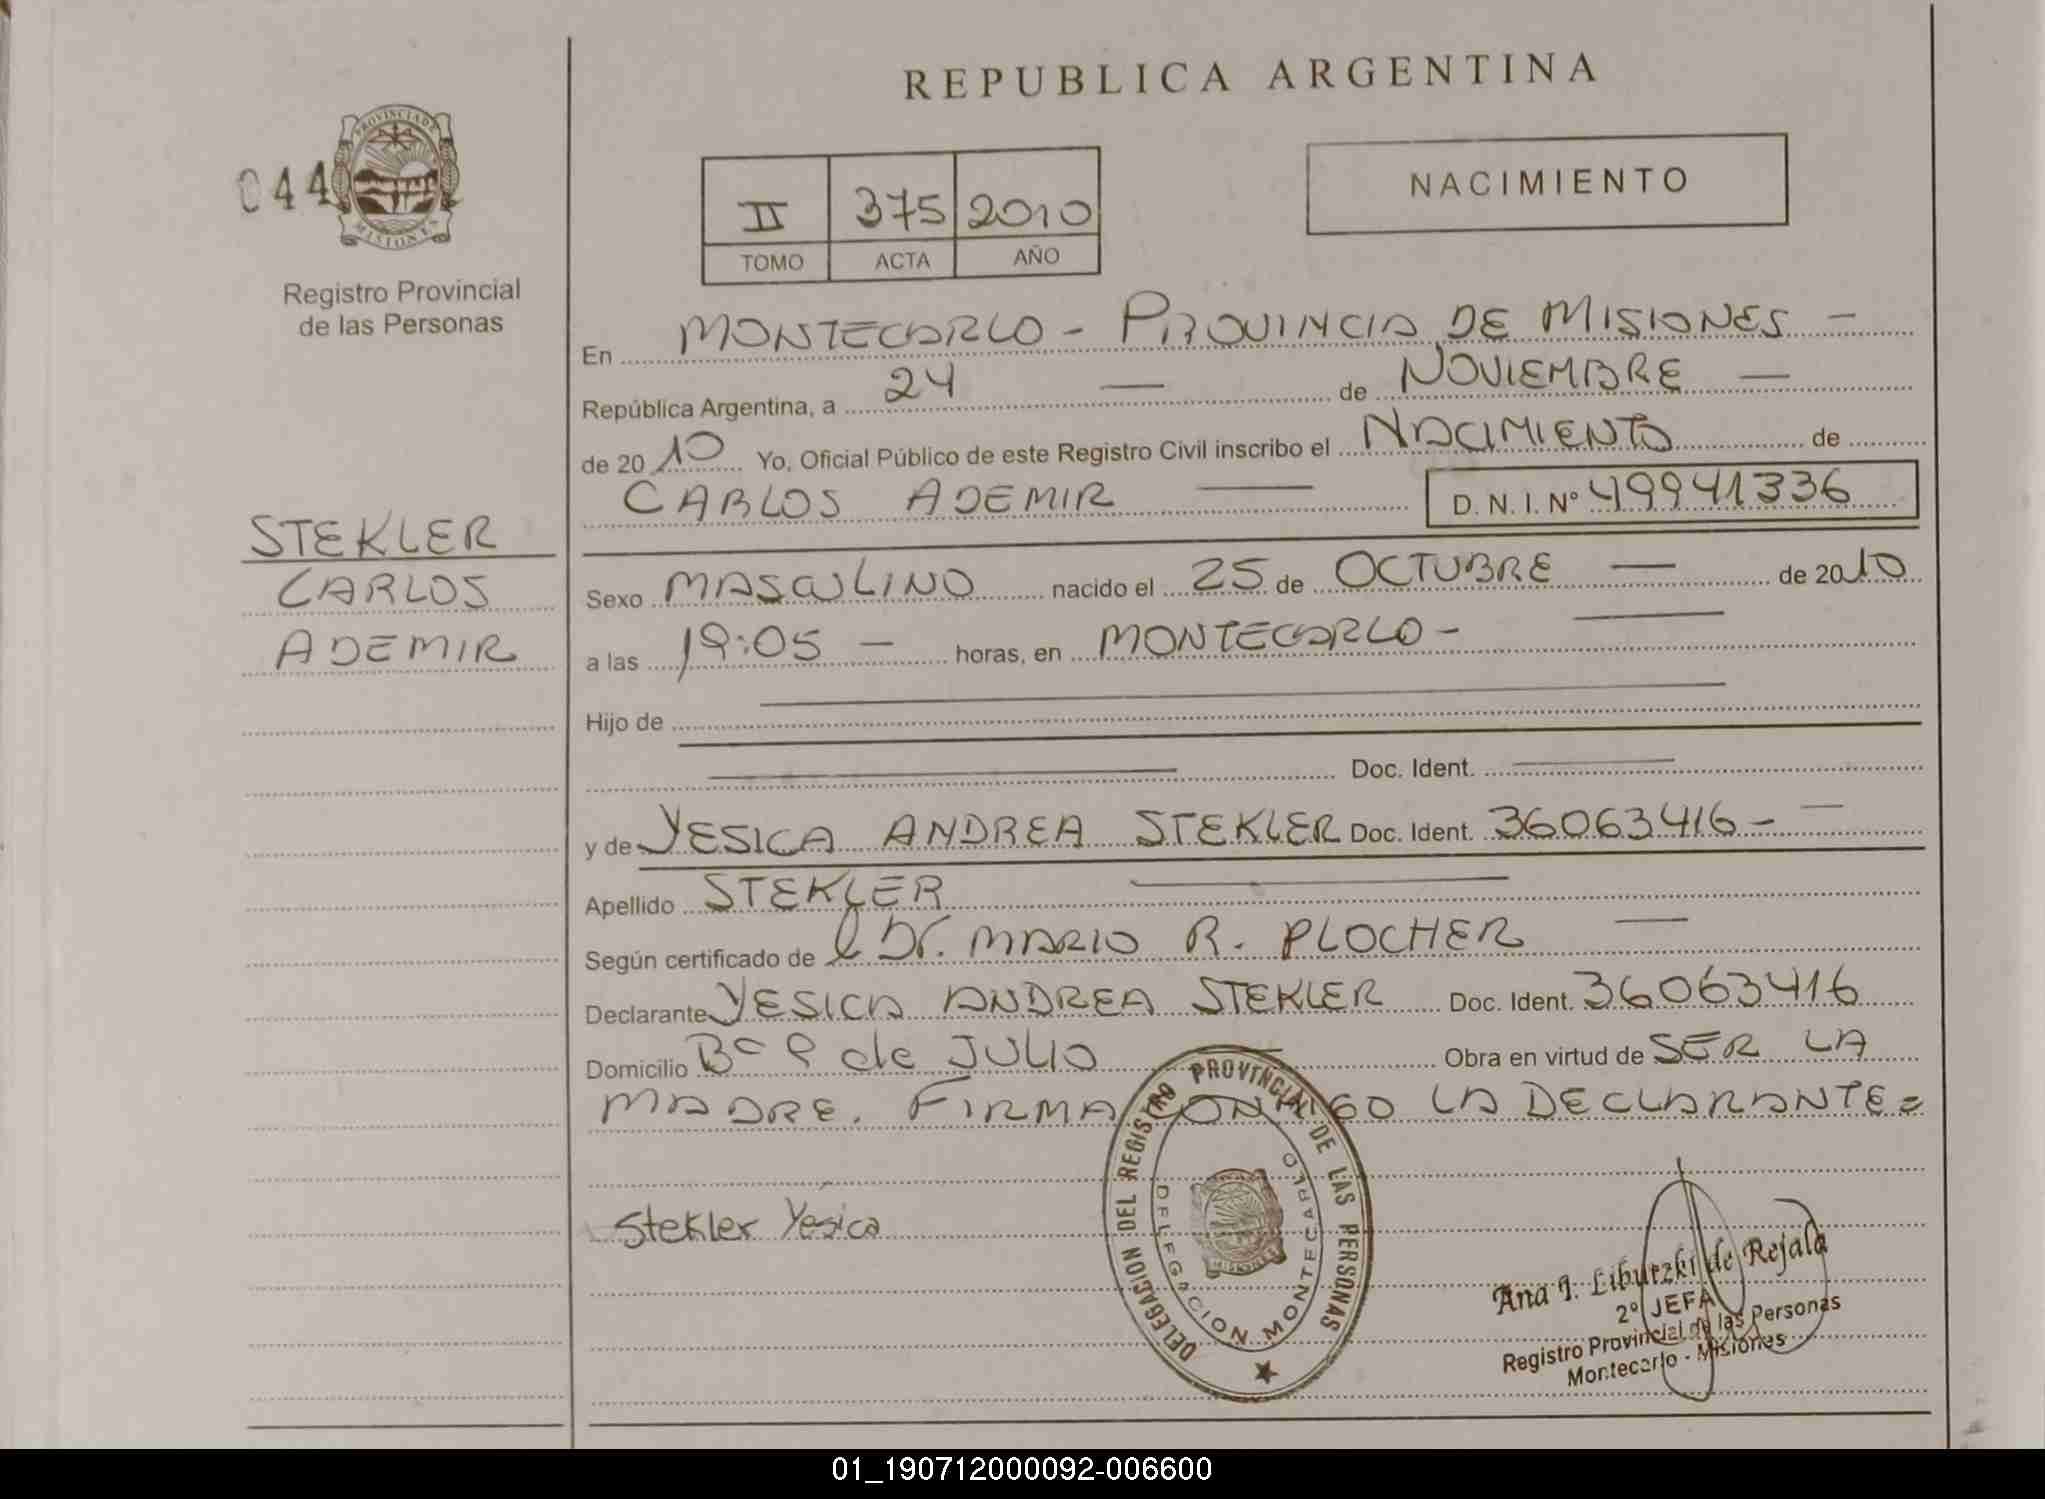 REPUBLICA ARGENTINA
044
PROVINCIA DE
MISIONES
Registro Provincial
de las Personas
II 375 2010
TOMO ACTA AÑO
NACIMIENTO
En MONTECARLO - PROVINCIA DE MISIONES —
República Argentina, a 24 — de NOVIEMBRE —
de 2010 Yo, Oficial Público de este Registro Civil inscribo el NACIMIENTO de
CARLOS ADEMIR — D. N. I. Nº 49941336
STEKLER
CARLOS
ADEMIR
Sexo MASCULINO nacido el 25 de OCTUBRE — de 2010
a las 19:05 — horas, en MONTECARLO - —
Hijo de —
— Doc. Ident. —
y de YESICA ANDREA STEKLER Doc. Ident. 36063416 - —
Apellido STEKLER —
Según certificado de l Dr. MARIO R. PLOCHER —
Declarante YESICA ANDREA STEKLER Doc. Ident. 36063416
Domicilio Bº 9 de JULIO — Obra en virtud de SER LA
MADRE. FIRMA CONMIGO LA DECLARANTE =
Stekler Yesica
DELEGACION DEL REGISTRO PROVINCIAL DE LAS PERSONAS
DELEGACION MONTECARLO
MISIONES
Ana I. Liburzki de Rejala
2º JEFA
Registro Provincial de las Personas
Montecarlo - Misiones
01_190712000092-006600